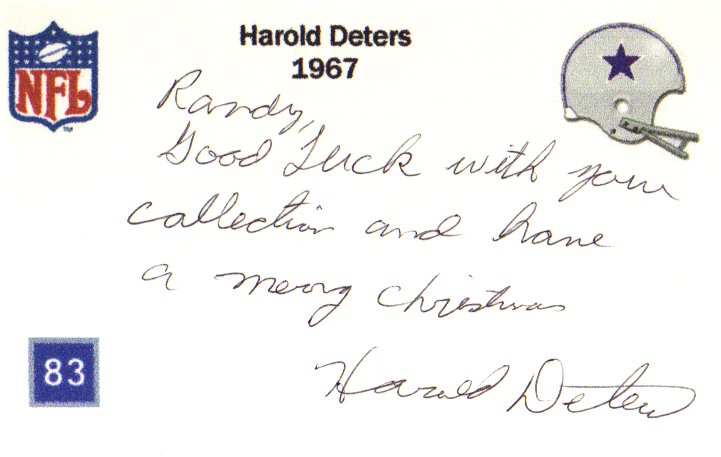 NFL
TM
Harold Deters
1967
Randy,
Good Luck with your
collection and have
a merry christmas
83
Harold Deters